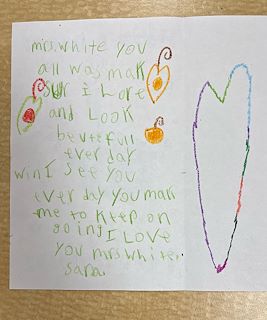 mrs.white you
all was mak
sur i Lore
and Look
beutefull
ever day
win I see you
ever day You mak
me to keep on
going I LOVE
you mrs white.
Sara